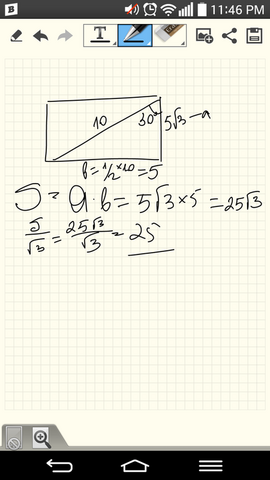 B 11:46 PM
T
10 30° 5√3 -a
b=1/2×10=5
S = a·b = 5√3×5 = 25√3
S/√3 = 25√3/√3 = 25